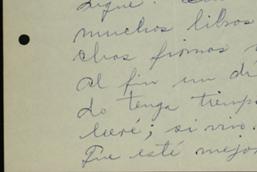 sigue.
muchos libros
obras
al fin un dí
do tenga tiemp
leeré; si vivo.
Que esté mejor